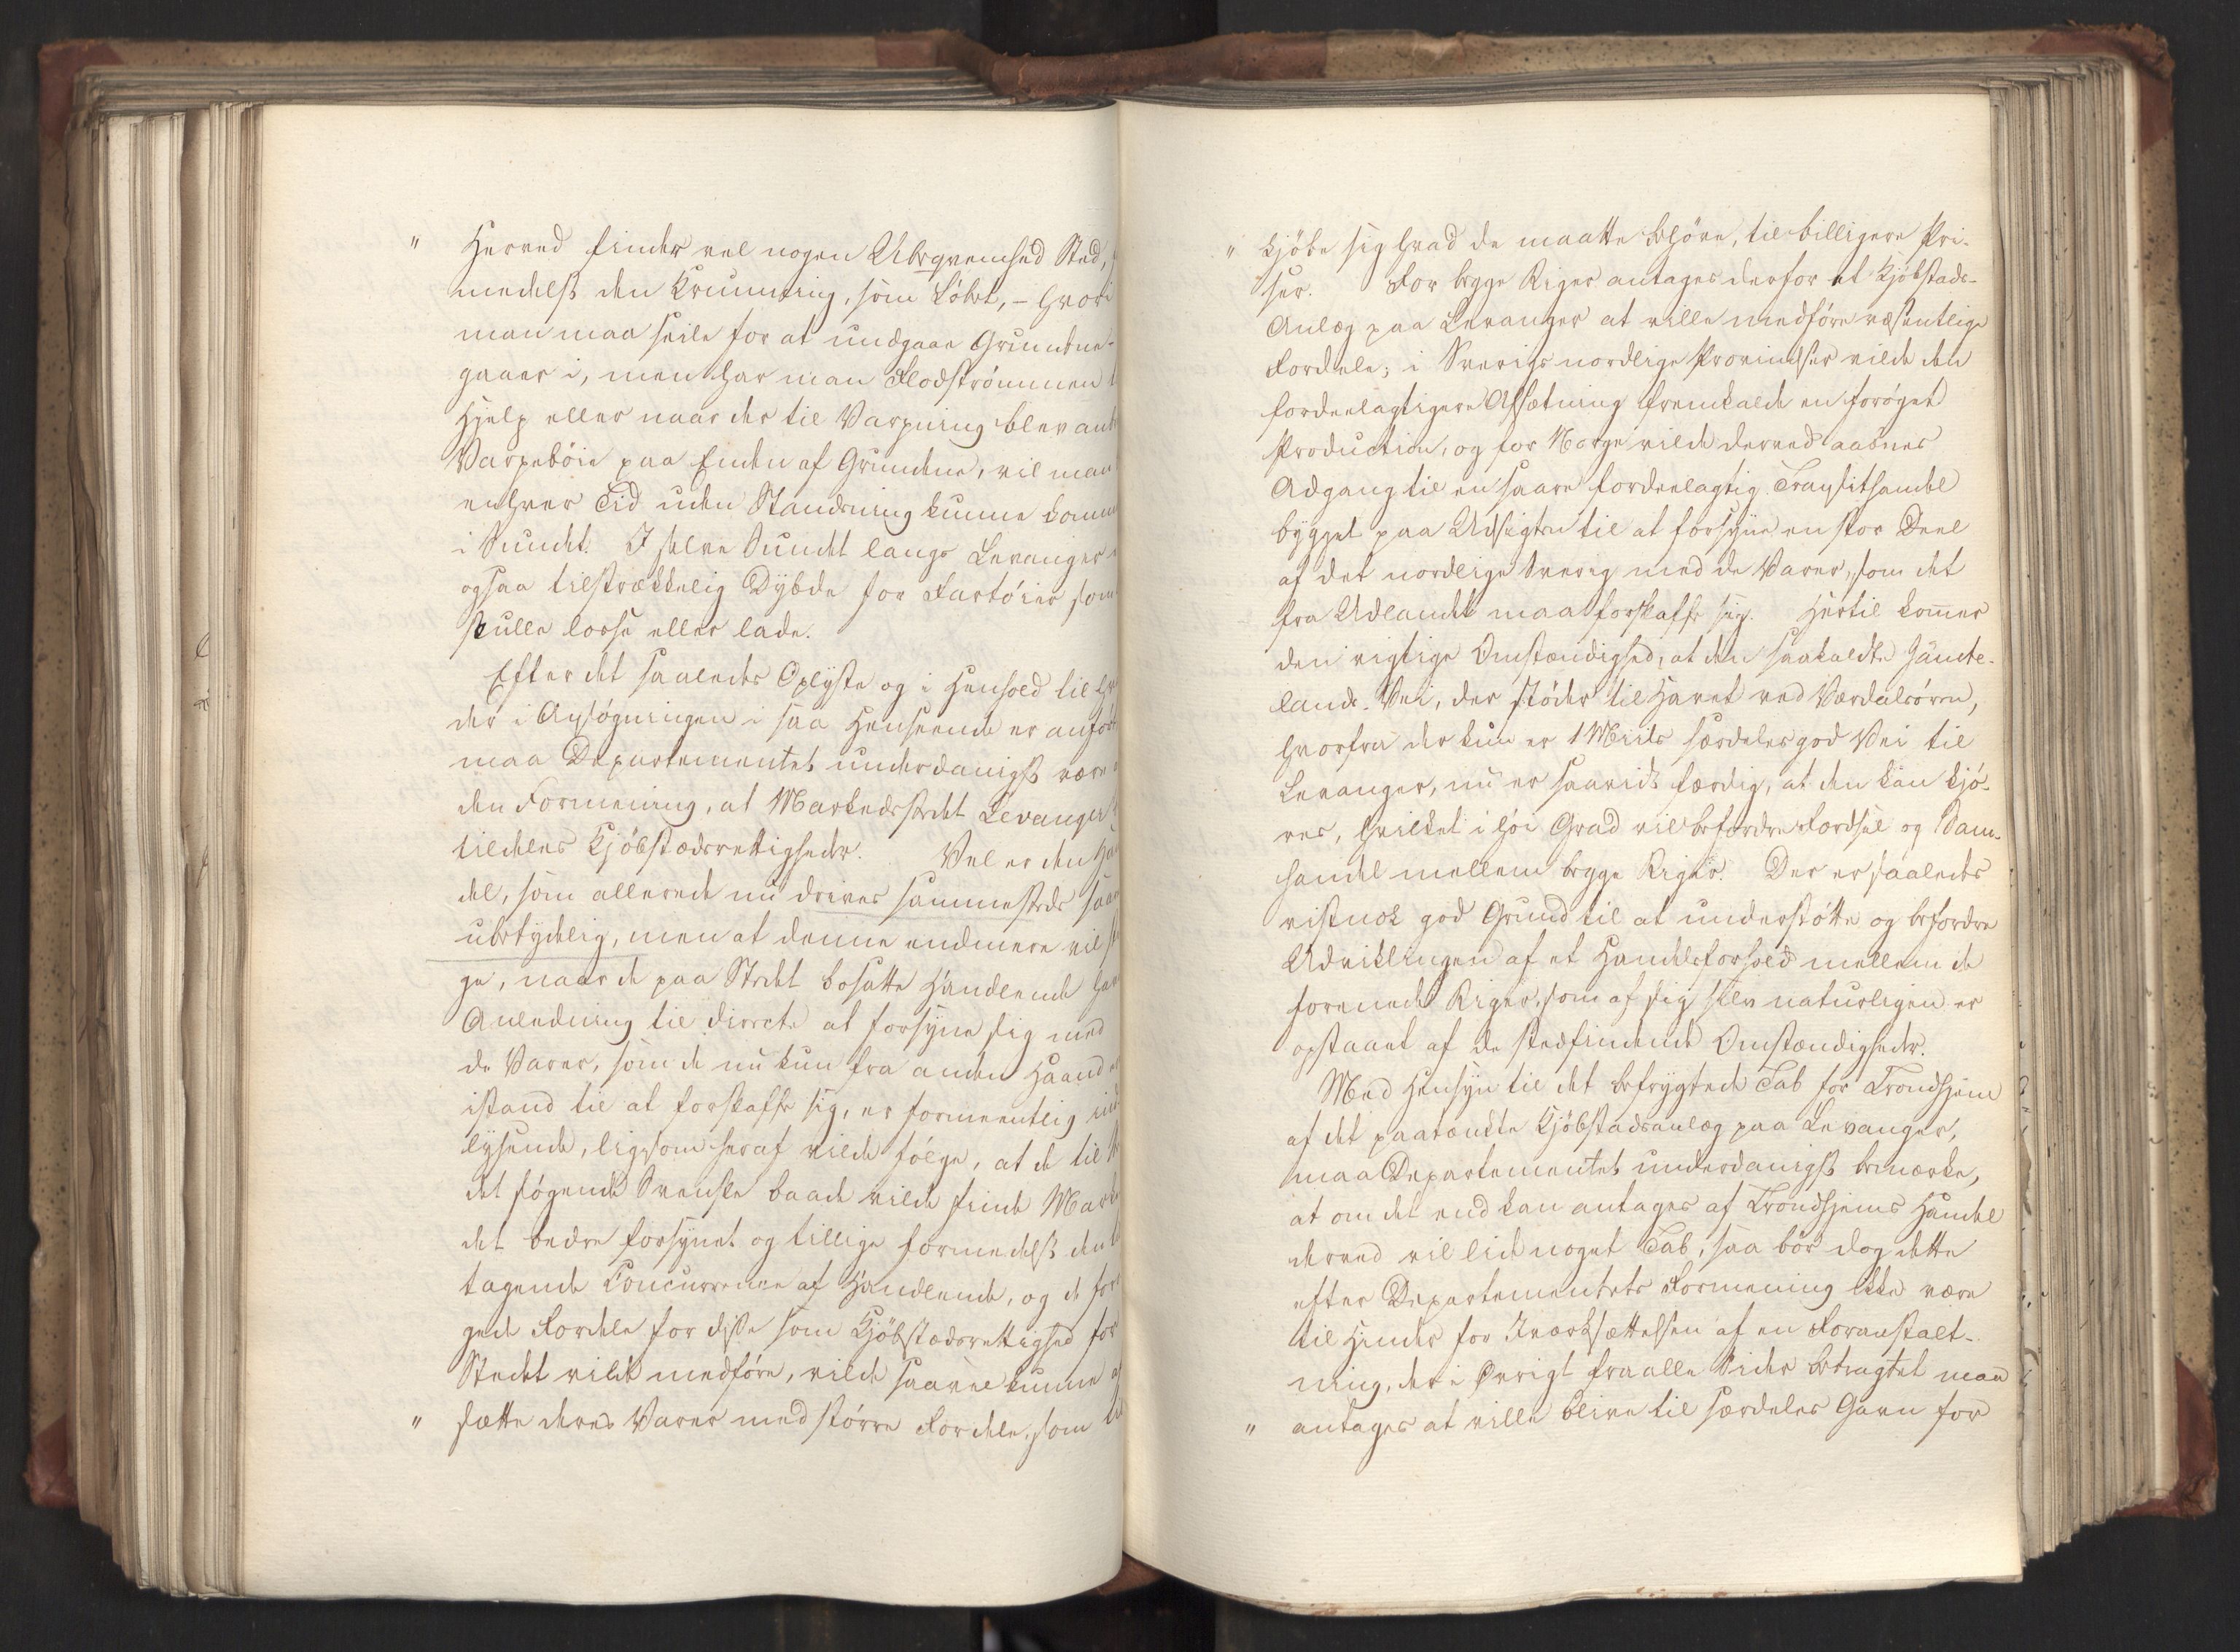 " Herved finder vel nogen Ubeqvemhed Sted,
medelst den Krumning, som Löbet, – hvori
man maa seile for at undgaae Grundene –
gaaer i, men har man Flodströmmen
Hjelp eller naar der til Varpning blev
Varpeböie paa Enden af Grundene, vil man
enhver Tid uden Standsning kunne komme
i Sundet. I selve Sundet langs Levanger
ogsaa tilstrækkelig Dybde for Fartöier som
skulle losse eller lade.
Efter det saaledes Oplyste og i Henhold til
der i Ansögningen i saa Henseende er anfört
maa Departementet underdanigst være
den Formening, at Markedsstedet Levanger
tildeles Kjöbstædsrettigheder. Vel er den
del, som allerede nu drives sammesteds
ubetydelig, men at denne endmere vil
ge, naar de paa Stedet bosatte Handlende
Anledning til directe at forsyne sig med
de Varer, som de nu kun fra anden Haand
istand til at forskaffe sig, er formeentlig
lysende, ligesom heraf vilde fölge, at de til
det sögende Svenske baade vilde finde
det bedre forsynet og tillige formedelst den
tagende Concurrence af Handlende, og de
gede Fordele for disse som Kjöbstædsrettighed for
Stedet vilde medföre, vilde saavel kunne
" sætte deres Varer med större Fordele, som
" kjöbe sig hvad de maatte behöve, til billigere Pri-
ser. For begge Riger antages derfor et Kjöbstads-
Anlæg paa Levanger at ville medföre væsentlige
Fordele; i Sverigs nordlige Provindser vilde den
fordeelagtigere Afsætning fremkalde en foröget
Production, og for Norge vilde derved aabnes
Adgang til en saare fordeelagtig Transithandel
bygget paa Udsigten til at forsyne en stor Deel
af det nordlige Sverig med de Varer, som det
fra Udlandet maa forskaffe sig. Hertil kommer
den vigtige Omstændighed, at den saakaldte Jämte-
lands-Vei, der stöder til Havet ved Værdalsören,
hvorfra der kun er 1 Miils særdeles god Vei til
Levanger, nu er saavidt færdig, at den kan kjö-
res, hvilket i höi Grad vil befordre Færdsel og Sam-
handel mellem begge Riger. Der er saaledes
vistnok god Grund til at understötte og befordre
Udviklingen af et Handelsforhold mellem de
forenede Riger, som af sig selv naturligen er
opstaaet af de stedfindende Omstændigheder.
Med Hensyn til det befrygtede Tab for Trondhjem
af det paatænkte Kjöbstadsanlæg paa Levanger,
maa Departementet underdanigst bemærke,
at om det end kan antages af Trondhjems Handel
derved vil lide noget Tab, saa bör dog dette
efter Departementets Formening ikke være
til Hinder for Iværksættelsen af en Foranstalt-
ning, der i Övrigt fra alle Sider betragtet maa
" antages at ville blive til særdeles Gavn for